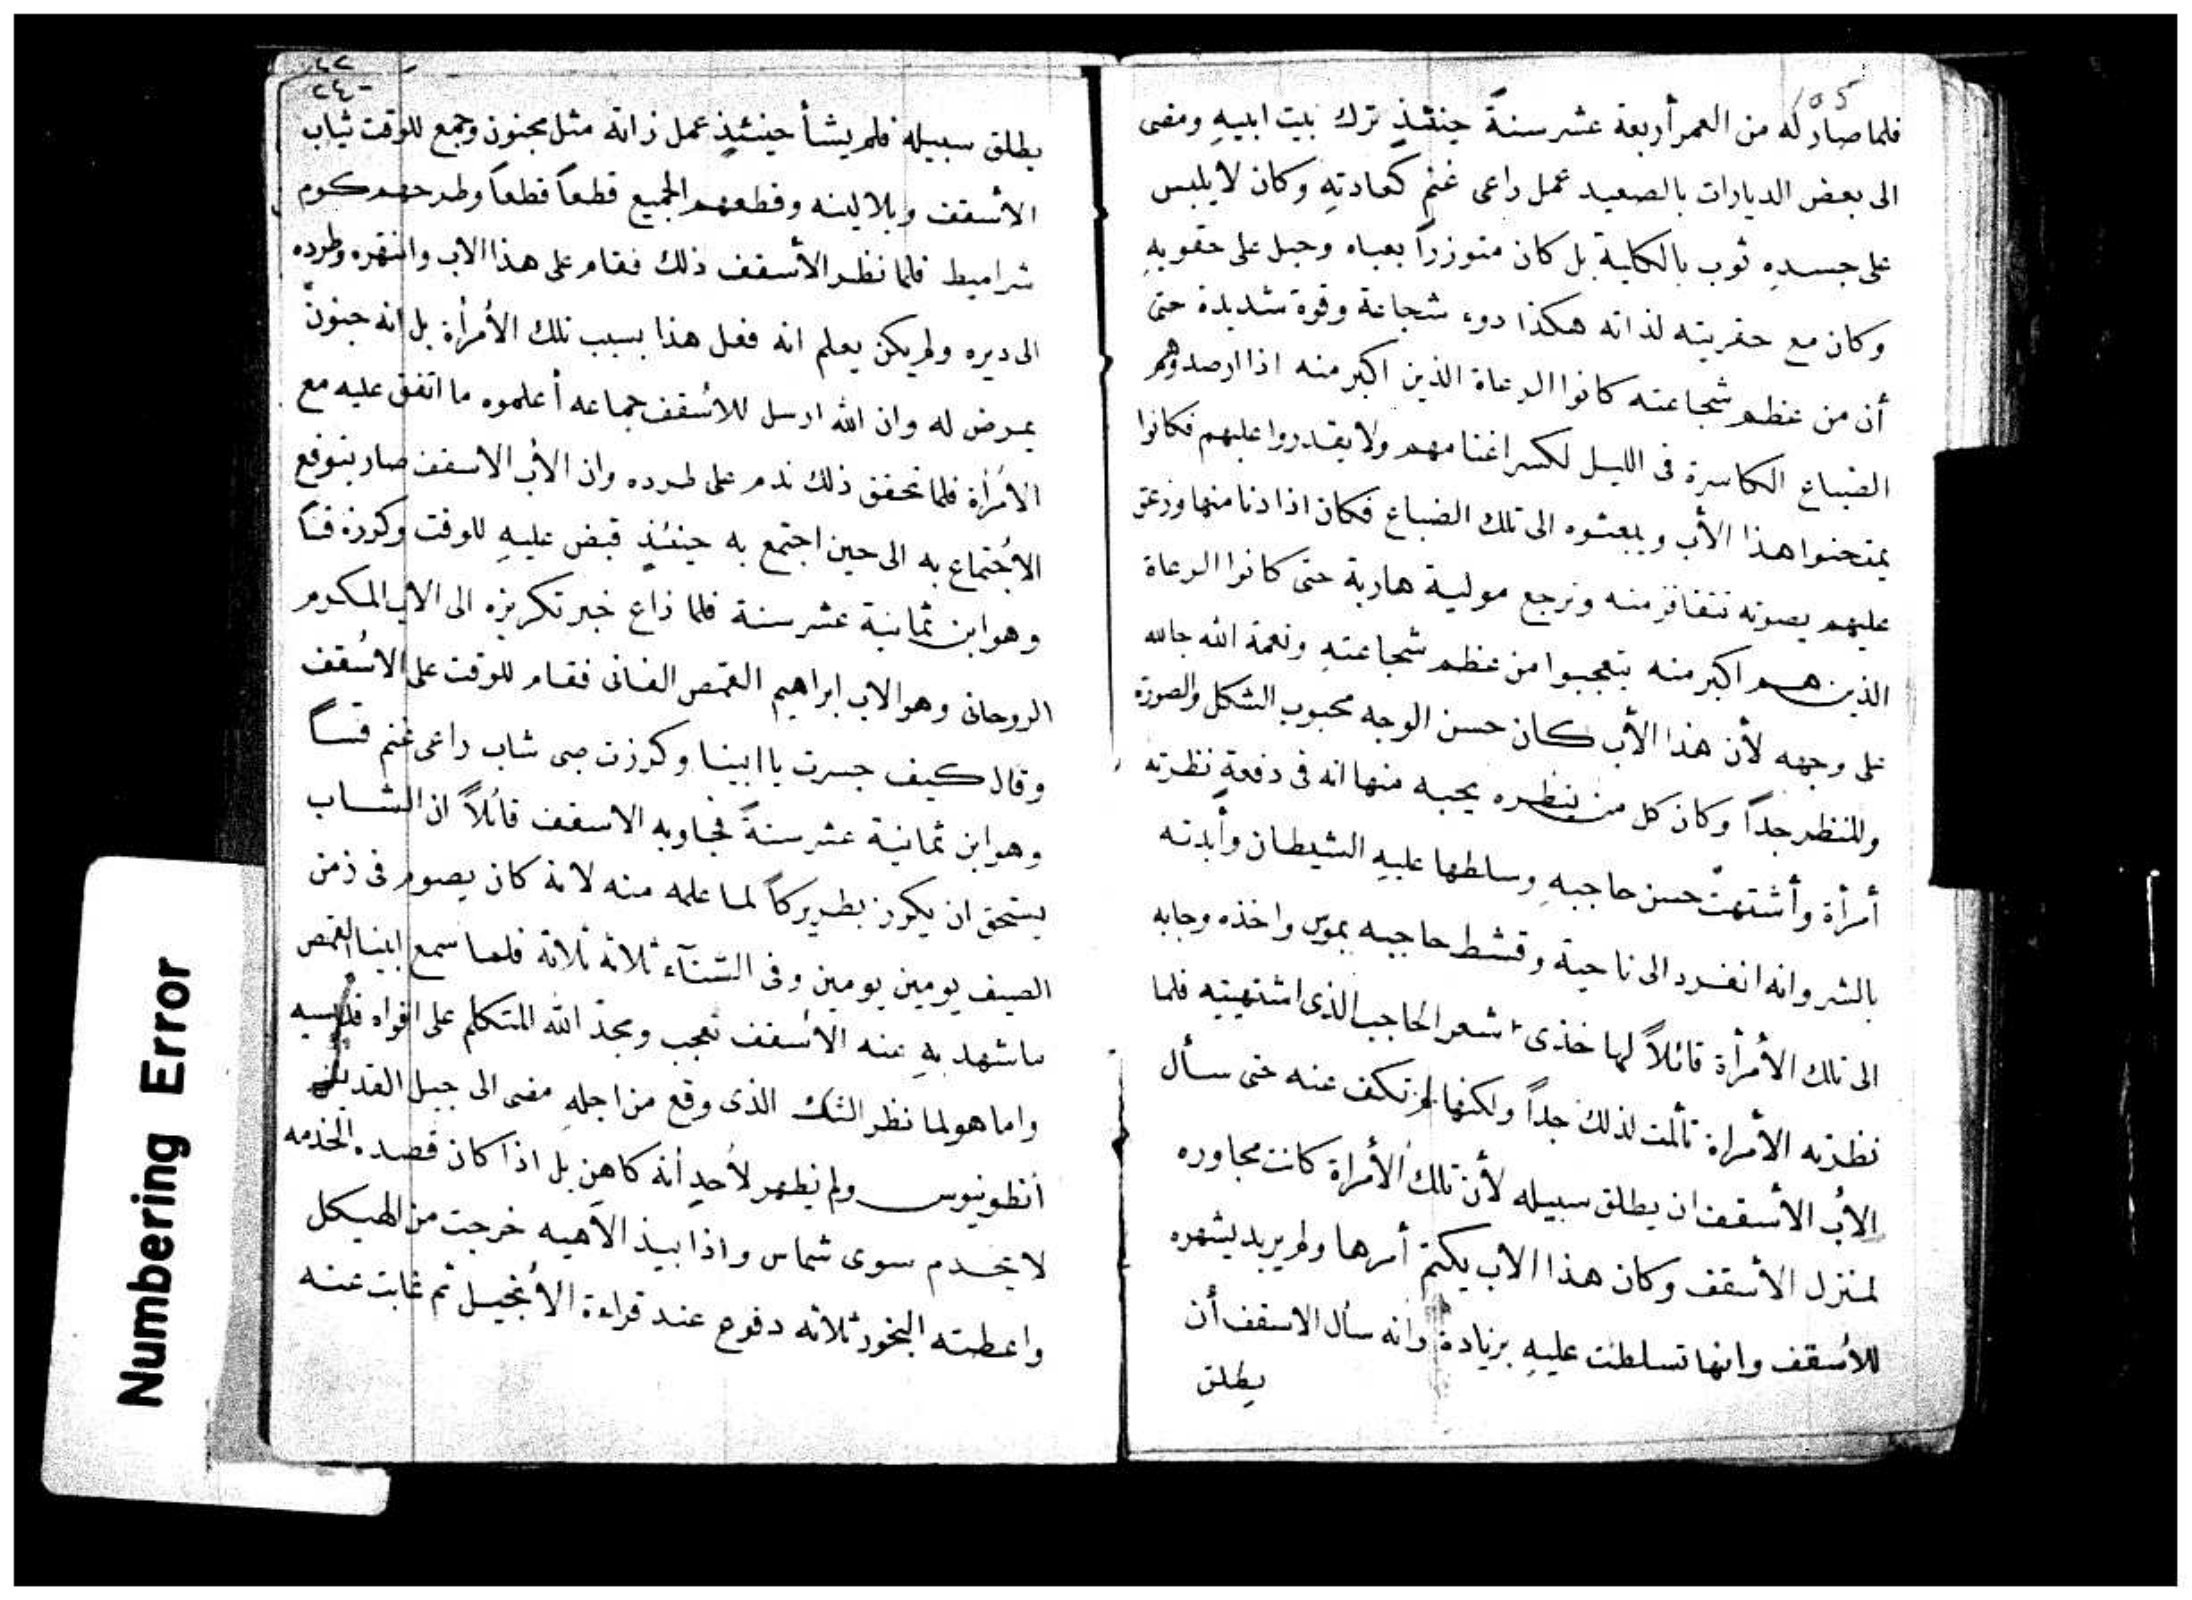 فلما صار له من العمر أربعة عشر سنةً حينئذٍ ترك بيت ابيهِ ومضى
الى بعض الديارات بالصعيد عمل راعى غنم كعادتهِ وكان لا يلبس
على جسدهِ ثوب بالكلية بل كان متوزراً بعباه وحبل على حقويهِ
وكان مع حقريته لذاته هكذا دوء شجاعة وقوة شديدة حتى
أن من عظم شجاعته كانوا الرعاة الذين اكبر منه اذا ارصدوهم
الضباع الكاسرة فى الليل لكسر اغنامهم ولا يقدروا عليهم فكانوا
يمتحنوا هذا الأب ويبعثوه الى تلك الضباع فكان اذا دنا منها وزعق
عليهم بصوته تتفافز منه وترجع مولية هاربة حتى كانوا الرعاة
الذين هم اكبر منه يتعجبوا من عظم شجاعتهِ ونعمة الله حالله
على وجهه لأن هذا الأب كان حسن الوجه محبوب الشكل والصورة
والمنظر جداً وكان كل من ينظره يحبه منها انه فى دفعةٍ نظرته
أمرأة وأشتهت حسن حاجبهِ وسلطها عليهِ الشيطان وأبدته
بالشر وانه انفرد الى ناحية وقشط حاجبه بموس واخذه وجابه
الى تلك الأمرأة قائلاً لها خذى شعر الحاجب الذى اشتهيتيه فلما
نظرته الأمراة تألمت لذلك جداً ولكنها لم تكف عنه حتى سأل
الأب الأسقف ان يطلق سبيله لأن تلك الأمرأة كانت مجاوره
لمنزل الأسقف وكان هذا الاب يكتم أمرها ولم يريد يشهره
للأسقف وانها تسلطت عليهِ بزيادة وانه سأل الاسقف أن
يطلق
٢٤٠
يطلق سبيله فلم يشأ حينئذٍ عمل ذاته مثل مجنون وجمع للوقت ثياب
الأسقف وبلالينه وقطعهم الجميع قطعاً قطعاً وطرحهم كوم
شراميط فلما نظر الأسقف ذلك فقام على هذا الاب وانتهره وطرده
الى ديره ولم يكن يعلم انه فعل هذا بسبب تلك الأمرأة بل انه جنونٌ
يعرض له وان الله ارسل للأسقف جماعه أعلموه ما اتفق عليه مع
الأمرأة فلما تحقق ذلك ندم على طرده وان الأب الاسقف صار يتوقع
الأجتماع به الى حين اجتمع به حينئذٍ قبض عليهِ للوقت وكرزه قساً
وهو ابن ثمانية عشر سنة فلما ذاع خبر تكريزه الى الاب المكرم
الروحانى وهو الاب ابراهيم القمص الفانى فقام للوقت على الأسقف
وقال كيف جسرت يا ابينا وكرزت صبى شاب راعى غنم قساً
وهو ابن ثمانية عشر سنةً فجاوبه الاسقف قائلاً ان الشاب
يستحق ان يكرز بطريركاً لما علمه منه لانه كان يصوم فى زمن
الصيف يومين يومين وفى الشتآء ثلاثة ثلاثة فلما سمع ابينا القمص
ماشهد بهِ عنه الأسقف تعجب ومجد الله المتكلم على افواه قديسيه
واما هو لما نظر الشك الذى وقع من اجلهِ مضى الى جبل القديس
أنطونيوس ولم يظهر لأحدٍ أنه كاهن بل اذا كان قصده الخدمه
لا يخدم سوى شماس واذا بيد الآهيه خرجت من الهيكل
واعطته البخور ثلاثه دفوع عند قراءة الأنجيل ثم غابت عنه
Numbering Error